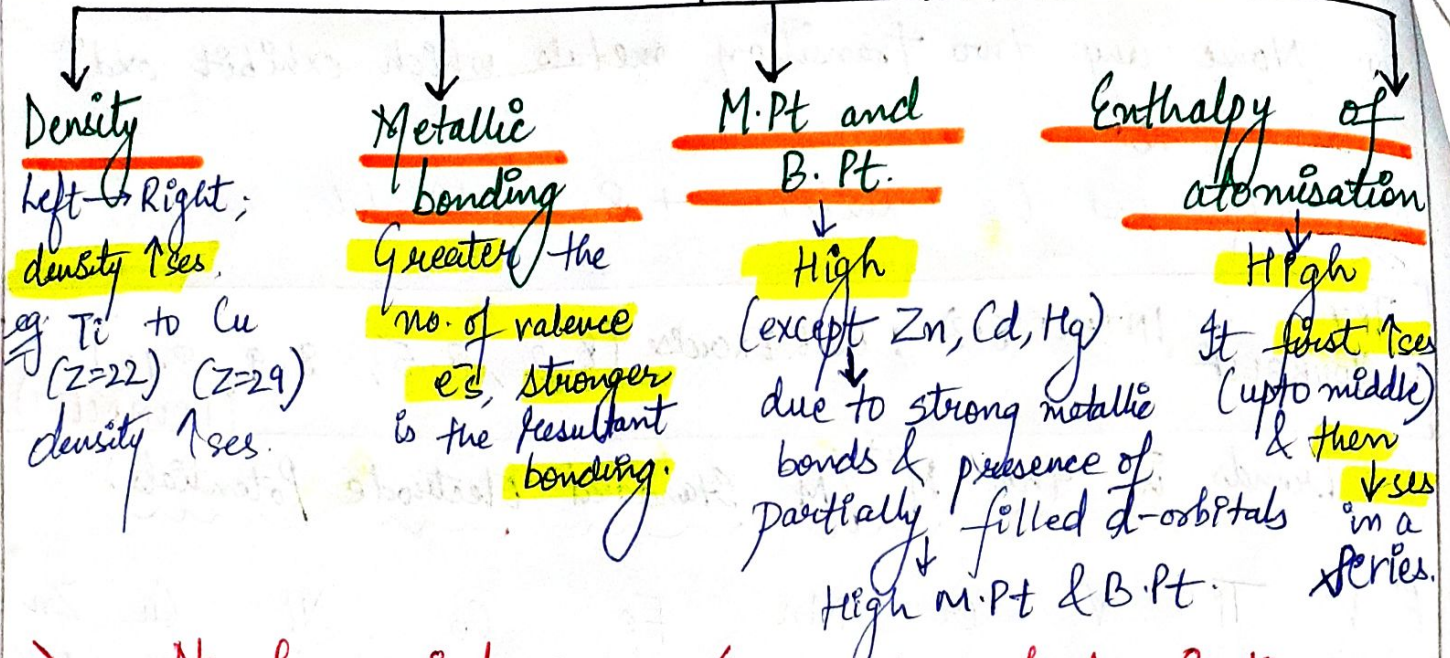 Density
Left → Right;
density ↑ses.
eg: Ti to Cu
(Z=22) (Z=29)
density ↑ses.
Metallic
bonding
Greater the
no. of valence
e⁻s, stronger
is the resultant
bonding.
M.Pt and
B. Pt.
↓
High
(except Zn, Cd, Hg)
↓
due to strong metallic
bonds & presence of
partially filled d-orbitals
↓
High M.Pt & B.Pt.
Enthalpy of
atomisation
↓
High
It first ↑ses
(upto middle)
& then
↓ses
in a
series.